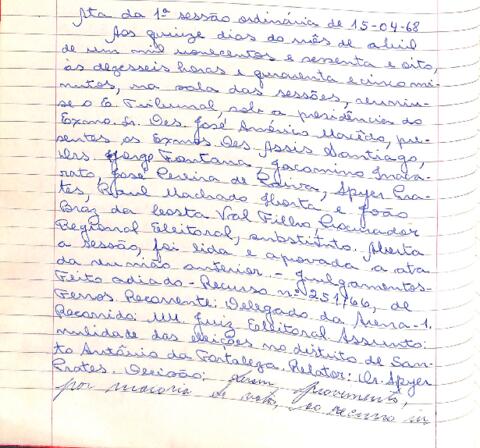 Ata da 1ª sessão ordinária de 15-04-68
Aos quinze dias do mês de abril
de um mil novecentos e sessenta e oito,
às dezesseis horas e quarenta e cinco mi-
nutos, na sala das sessões, reuniu-
se o E. Tribunal, sob a presidência do
Exmo. Sr. Des. José Américo Macêdo, pre-
sentes os Exmos. Des. Assis Santiago,
Drs. Jorge Fontana, Jacomino Inaca-
rato, José Pereira de Paiva, Spyer Pra-
tes, Raul Machado Horta e João
Braz da Costa Val Filho, Procurador
Regional Eleitoral, substituto. Aberta
a sessão, foi lida e aprovada a ata
da reunião anterior. - Julgamentos -
Feito adiado - Recurso nº 251/66, de
Ferros. Recorrente: Delegado da Arena-1.
Recorrido: MM. Juiz Eleitoral. Assunto:
nulidade das eleições no distrito de San-
to Antônio da Fortaleza. Relator: Dr. Spyer
Prates. Decisão: deram provimento,
por maioria de votos, ao recurso in